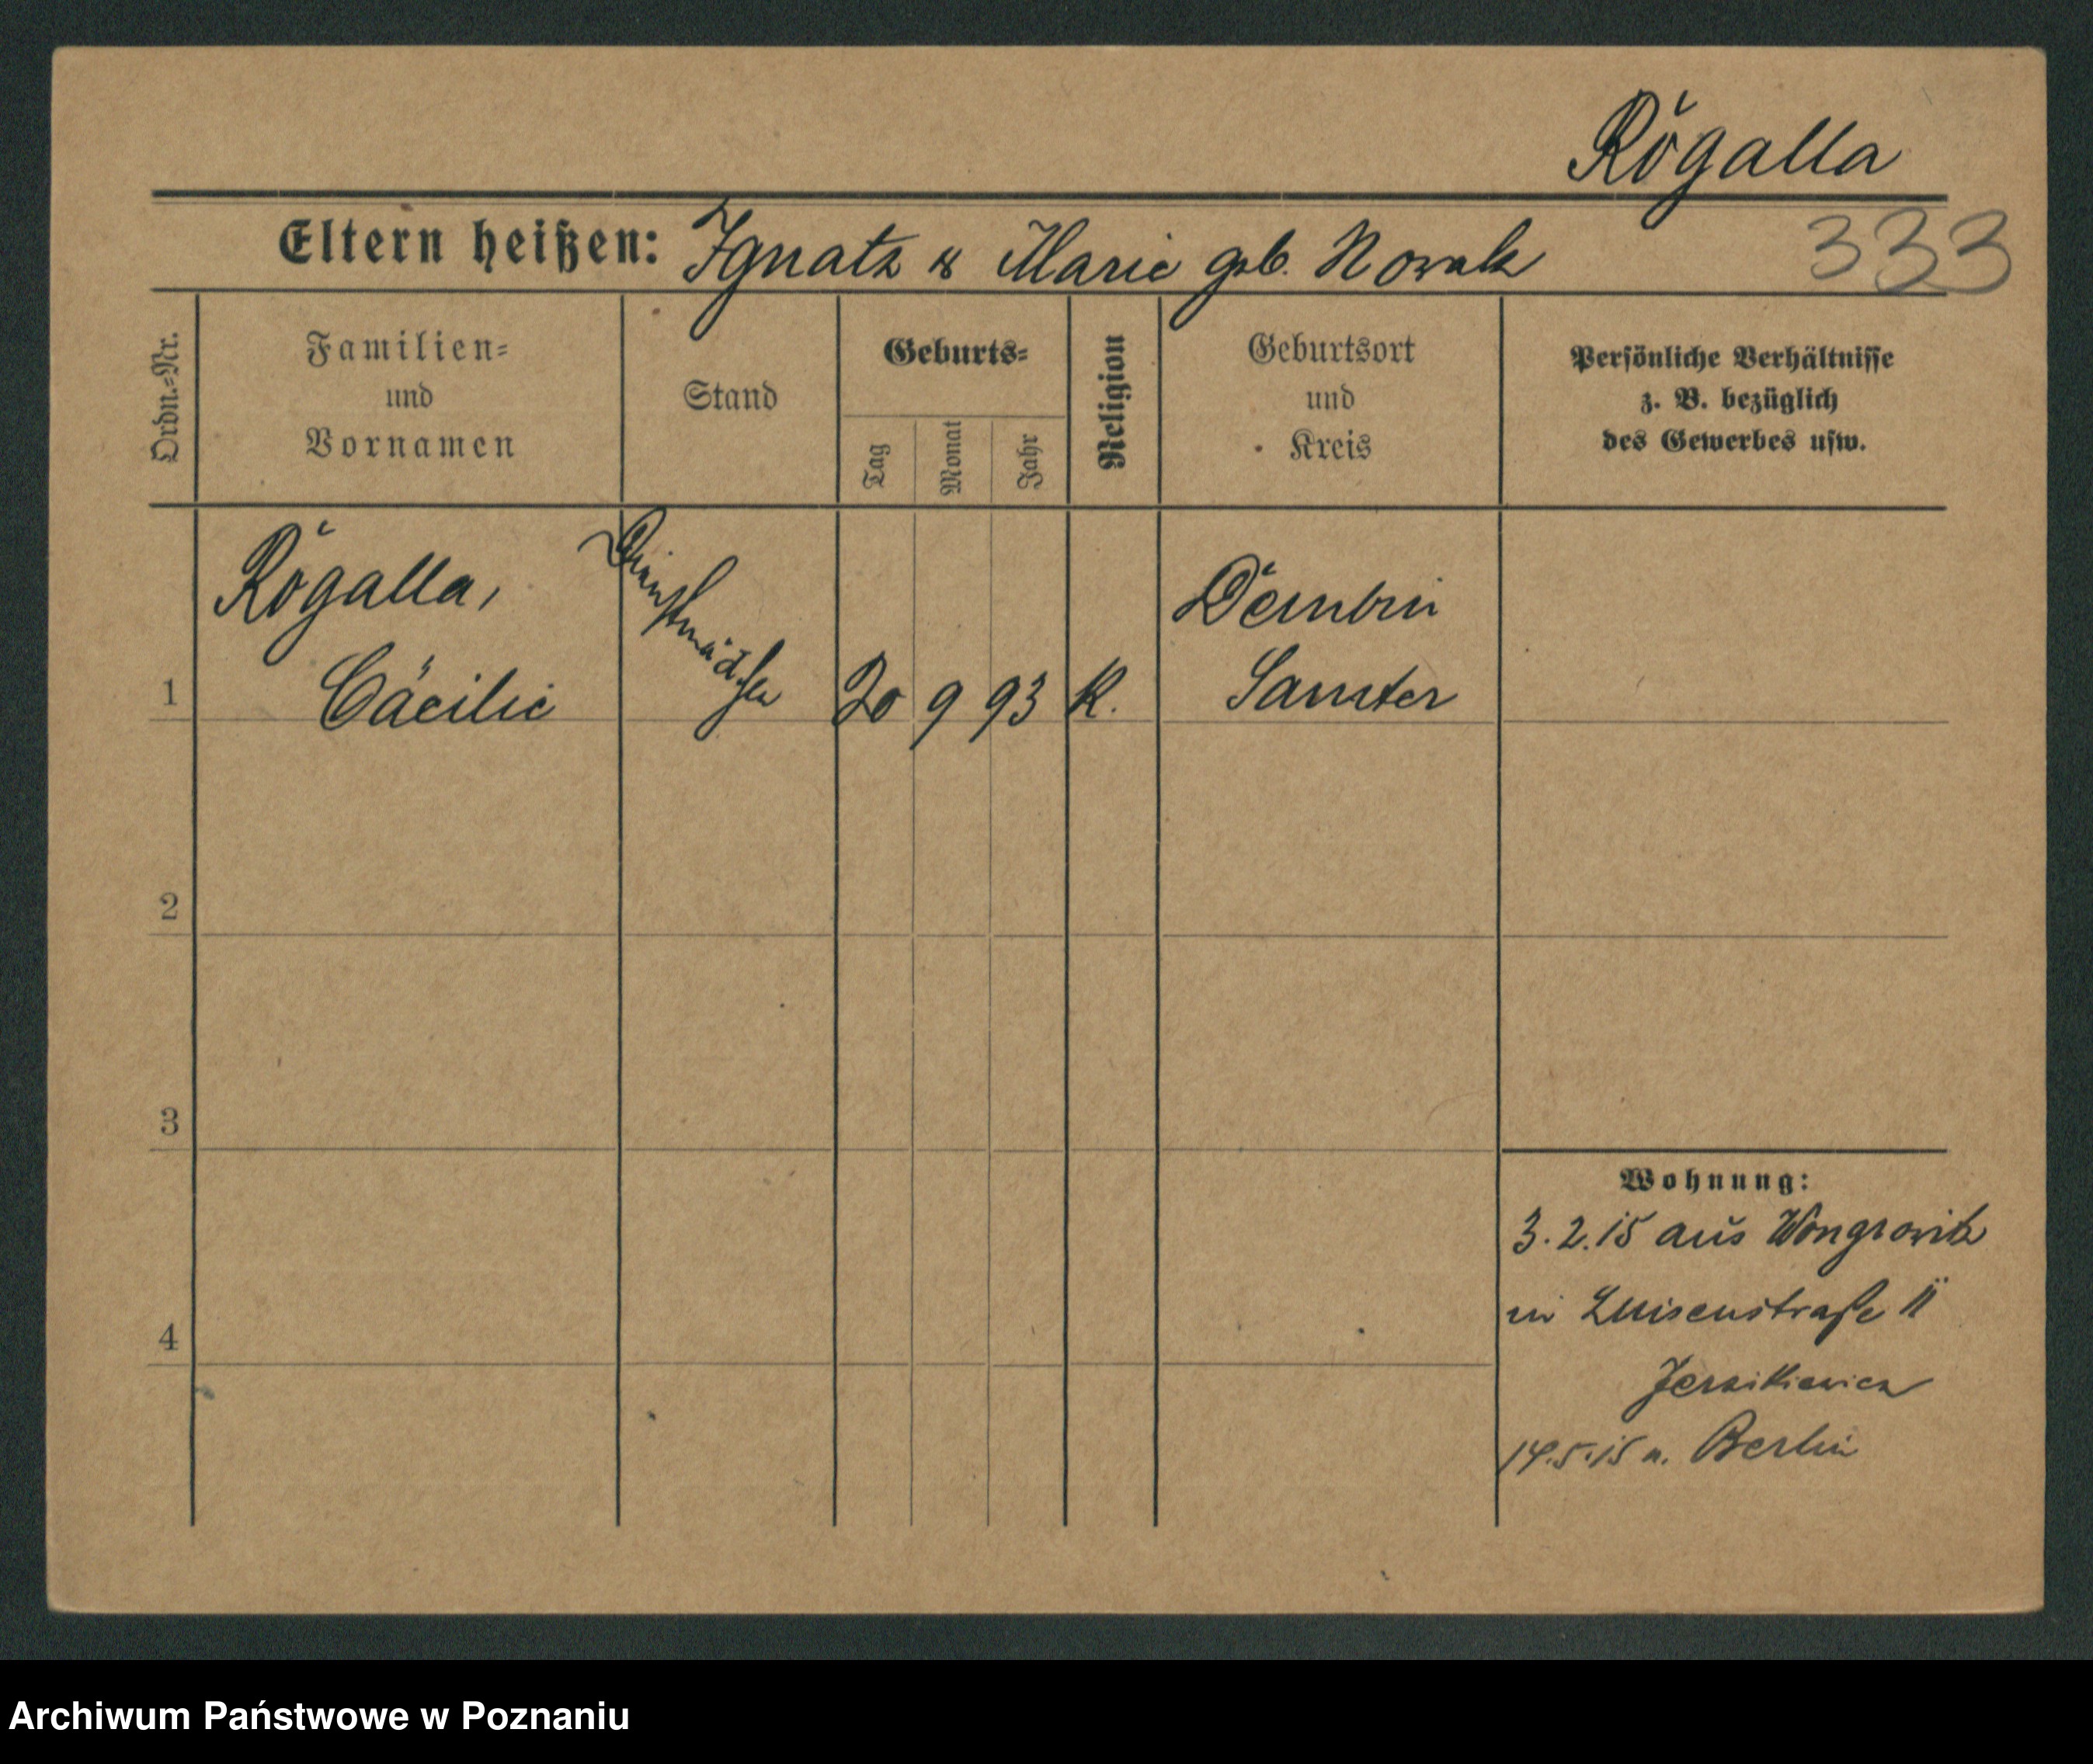 Rogalla
Eltern heißen: Ignatz & Marie geb. Nowak
333
Ordn.-Nr.
Familien-
und
Vornamen
Stand
Geburts-
Tag
Monat
Jahr
Religion
Geburtsort
und
Kreis
Persönliche Verhältnisse
z. B. bezüglich
des Gewerbes usw.
1
Rogalla,
Cäcilie
Dienstmädchen
20 9 93 K.
Samter
2
3
4
Wohnung:
3.2.15 aus Wongrowitz
in Luisenstraße 11
14.5.15 n. Berlin
Archiwum Państwowe w Poznaniu